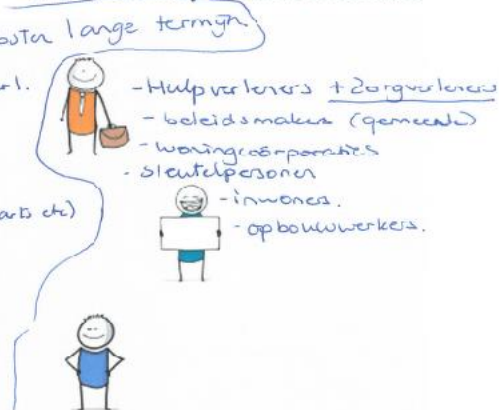 lange termijn.
- Hulpverleners + Zorgverleners
- beleidsmakers (gemeente)
- woningcoörporaties
- sleutelpersonen
etc)
- inwoners.
- opbouwwerkers.